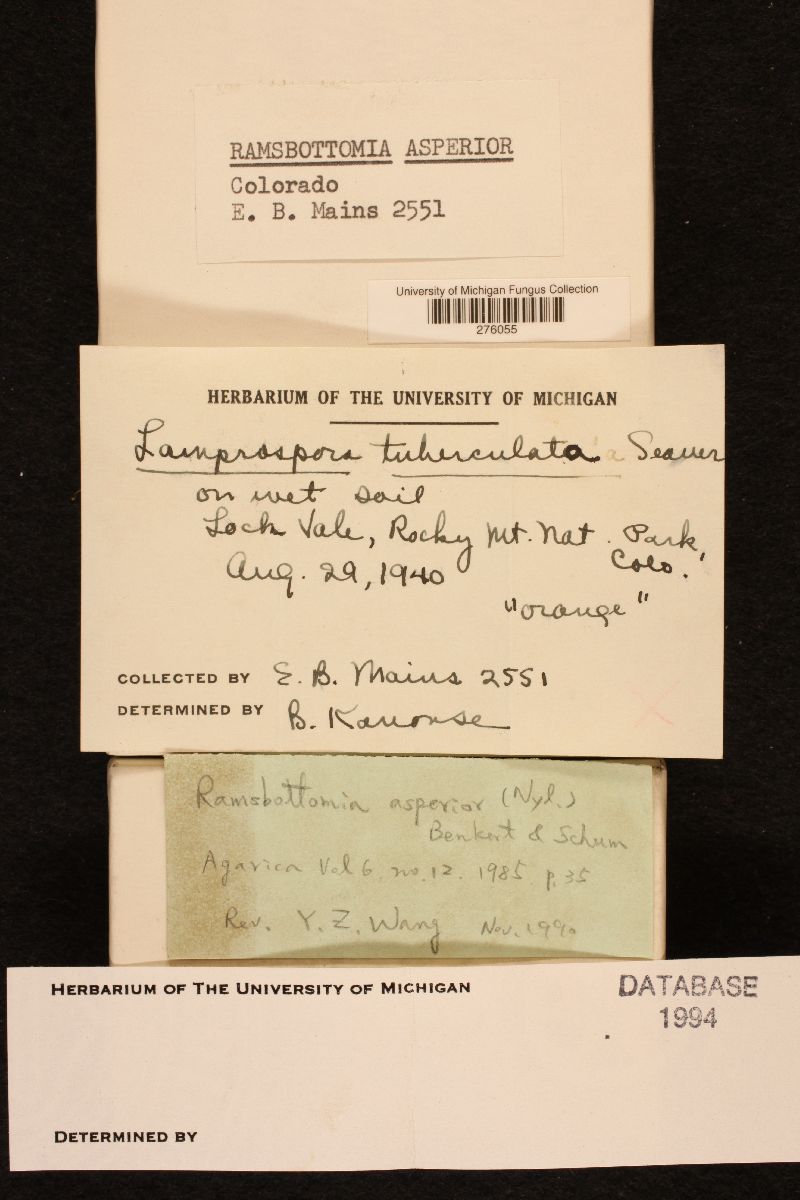 RAMSBOTTOMIA ASPERIOR
Colorado
E. B. Mains 2551
University of Michigan Fungus Collection
276055
HERBARIUM OF THE UNIVERSITY OF MICHIGAN
Lamprospora tuberculata a Seaver
on wet soil
Lock Vale, Rocky Mt. Nat. Park,
Colo.
Aug. 29, 1940
"orange"
COLLECTED BY E. B. Mains 2551
DETERMINED BY B. Kanouse
Ramsbottomia asperior (Nyl.)
Benkert & Schum
Agarica Vol 6. no. 12. 1985 p. 35
Rev. Y. Z. Wang Nov. 1990
HERBARIUM OF THE UNIVERSITY OF MICHIGAN
DATABASE
1994
DETERMINED BY